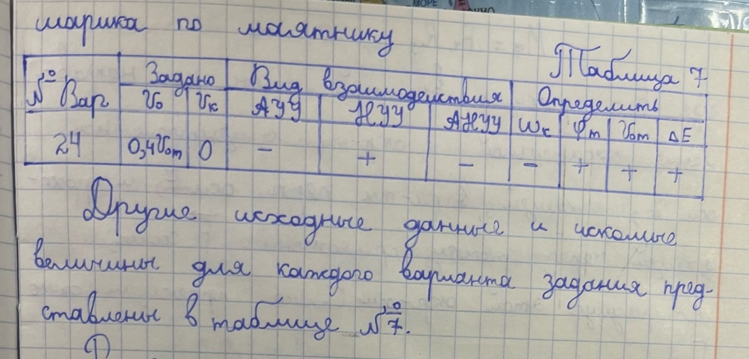 шарика по маятнику
Таблица 7
№ Вар Задано Вид взаимодействия Определить
υ₀ υₖ АУУ НУУ АНУУ ωₖ φₘ υ₀ₘ ΔE
24 0,4υ₀ₘ 0 – + – – + + +
Другие исходные данные и искомые
величины для каждого варианта задания пред-
ставлены в таблице №7.